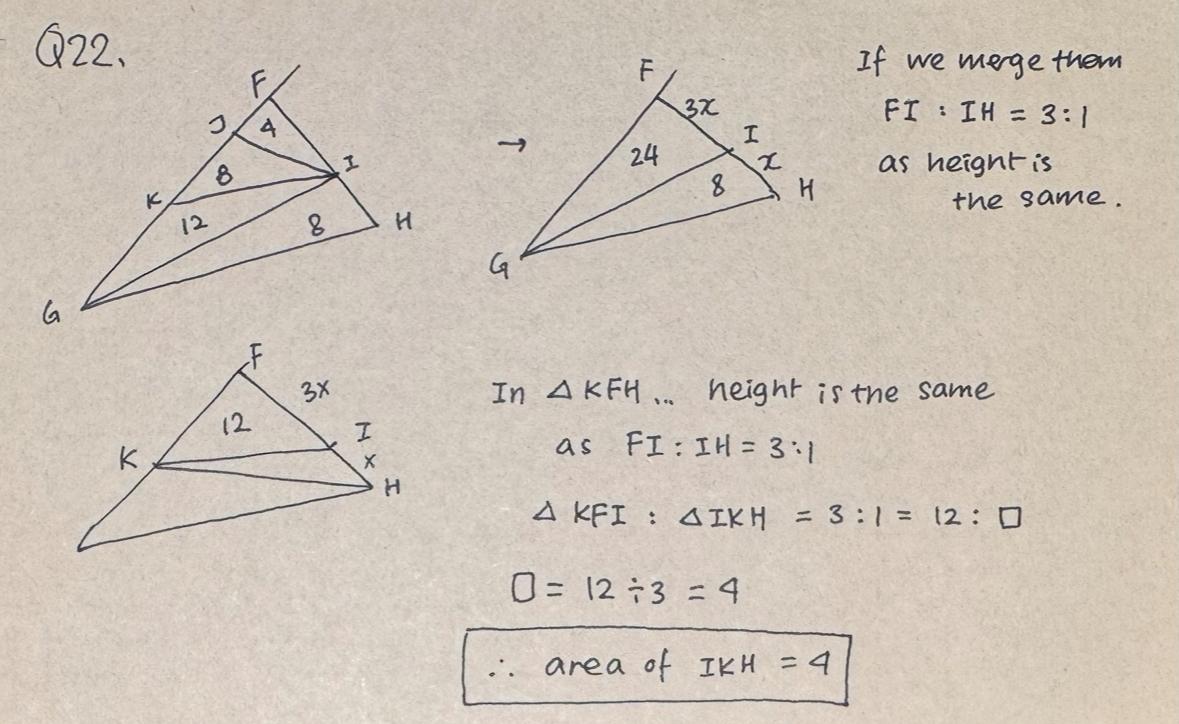 Q22.
F
J
4
I
8
K
12
8
H
G
→
F
3x
I
24
x
8
H
G
If we merge them
FI : IH = 3:1
as height is
the same.
F
3x
12
I
K
x
H
In △KFH... height is the same
as FI : IH = 3:1
△KFI : △IKH = 3:1 = 12 : □
□ = 12 ÷ 3 = 4
∴ area of IKH = 4